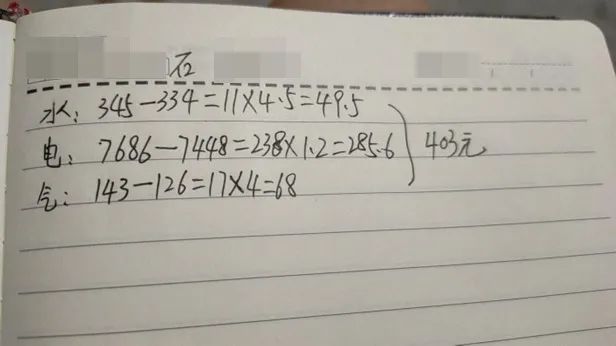 水: 345-334=11×4.5=49.5
电: 7686-7448=238×1.2=285.6
气: 143-126=17×4=68
403元